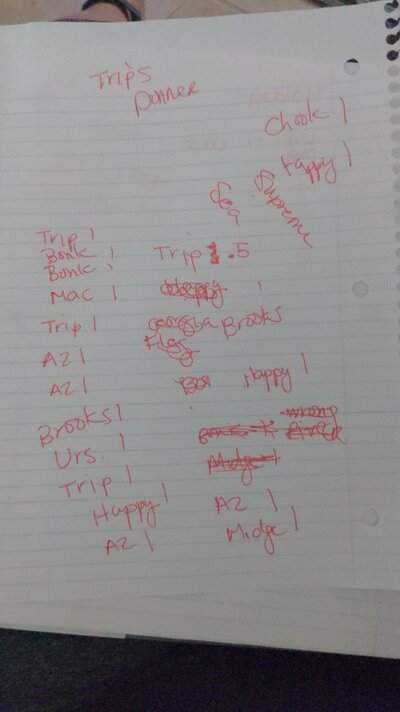 Trip's
Dinner
Chook 1
Happy 1
Sea Supreme
Trip 1
Bonk 1
Bonk 1
Trip 1.5
Mac 1
Trip 1
Georgba Brooks
Flez
AZ 1
AZ 1
Happy 1
Brooks 1
wrong
Urs. 1
Midge 1
Trip 1
Happy 1
AZ 1
AZ 1
Midge 1